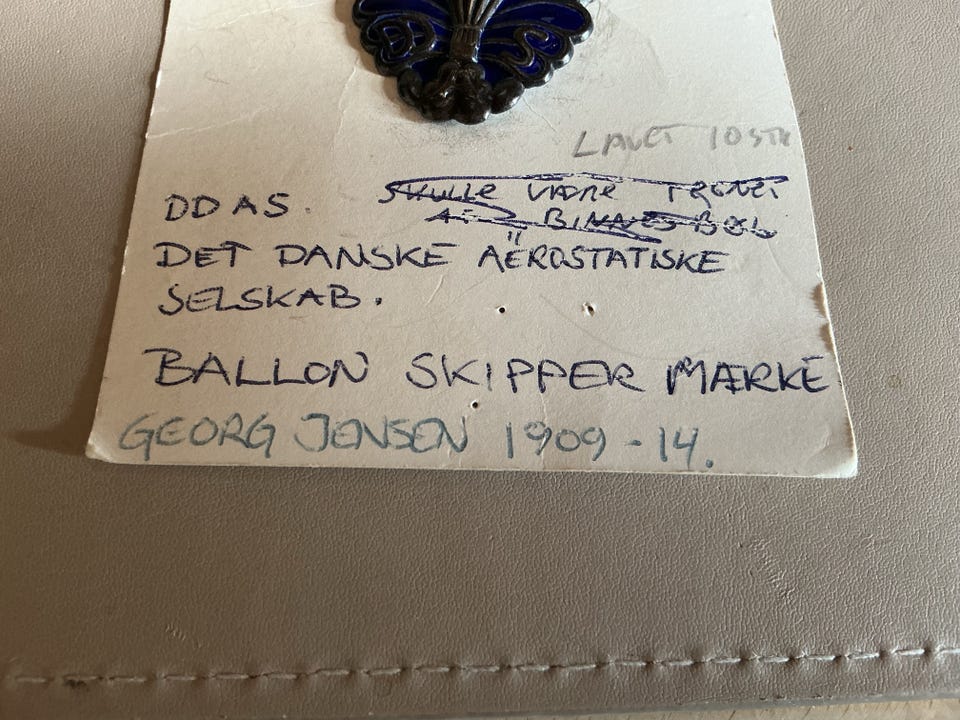 LAVET 10 STK
DDAS.
SKULLE VÆRE TEGNET
AF
DET DANSKE AËROSTATISKE
SELSKAB.
BALLON SKIPPER MÆRKE
GEORG JENSEN 1909-14.